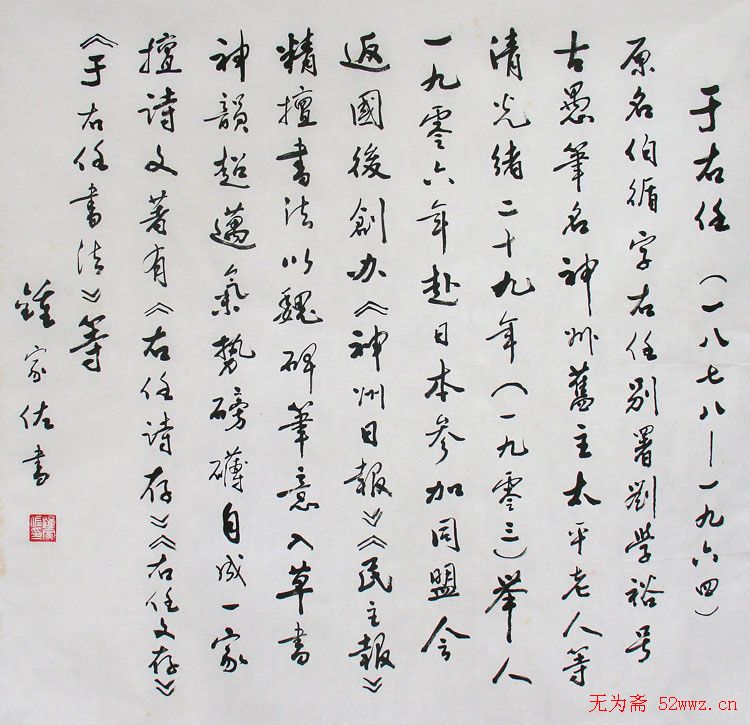 于右任（一八七八—一九六四）
原名伯循字右任别署劉學裕号
古愚筆名神州舊主太平老人等
清光緒二十九年（一九零三）举人
一九零六年赴日本参加同盟会
返國後創办《神州日報》《民主報》
精擅書法以魏碑筆意入草書
神韻超邁氣势磅礴自成一家
擅詩文著有《右任詩存》《右任文存》
《于右任書法》等
鍾家佐書
无为斋 52wwz.cn